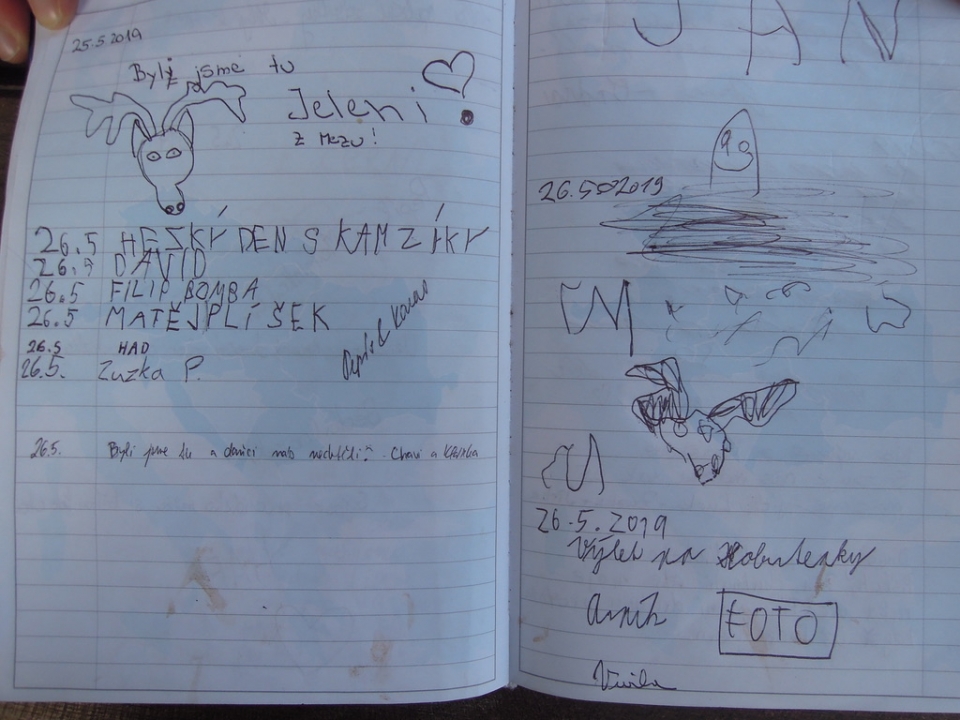 25.5.2019
Byli jsme tu
Jeleni!
z Mezu!
26.5 HEZKÝ DEN S KAMZÍKY
26.5 DAVID
26.5 FILIP BOMBA
26.5 MATĚJ PLÍŠEK
26.5 HAD
26.5. Zuzka P.
26.5. Byli jsme tu a daníci nás nechtěli
JAN
26.5.2019
26.5.2019
Výlet na
FOTO